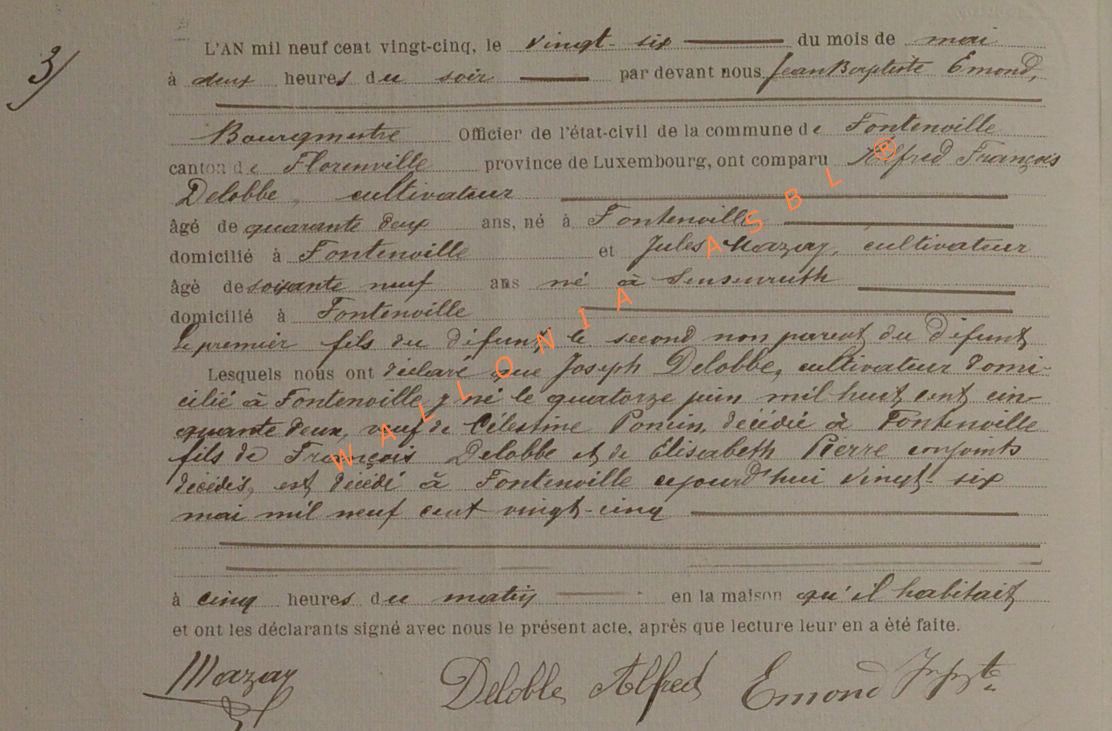 3/
L'AN mil neuf cent vingt-cinq, le vingt-six du mois de mai
à deux heures du soir par devant nous Jean Baptiste Emond,
Bourgmestre Officier de l'état-civil de la commune de Fontenoille
canton de Florenville province de Luxembourg, ont comparu Alfred François
Delobbe, cultivateur
âgé de quarante deux ans, né à Fontenoille
domicilié à Fontenoille et Jules Mazay, cultivateur
âgé de soixante neuf ans né à Sensenruth
domicilié à Fontenoille
le premier fils du défunt le second non parent du défunt
Lesquels nous ont déclaré que Joseph Delobbe, cultivateur domi-
cilié à Fontenoille y né le quatorze juin mil huit cent cin-
quante deux, veuf de Célestine Poncin, décédée à Fontenoille
fils de François Delobbe et de Elisabeth Pierre conjoints
décédés, est décédé à Fontenoille aujourd'hui vingt-six
mai mil neuf cent vingt-cinq
à cinq heures du matin en la maison qu'il habitait
et ont les déclarants signé avec nous le présent acte, après que lecture leur en a été faite.
Mazay Delobbe Alfred Emond
WALLONIA ASBL ®